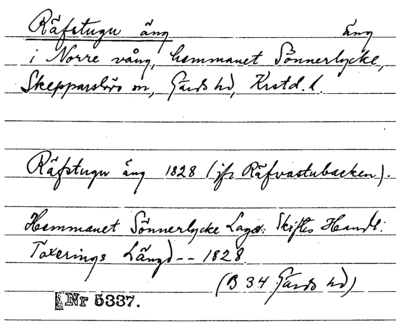 Räfstugu äng äng
i Norre vång, hemmanet Sönnerlycke,
Skepparslövs sn, Gärds hd, Krstd. l.
Räfstugu äng 1828 (jfr Räfvastubacken).
Hemmanet Sönnerlycke Laga: Skiftes Handl:
Taxerings Längd -- 1828
(B 34 Gärds hd)
Nr 5337.